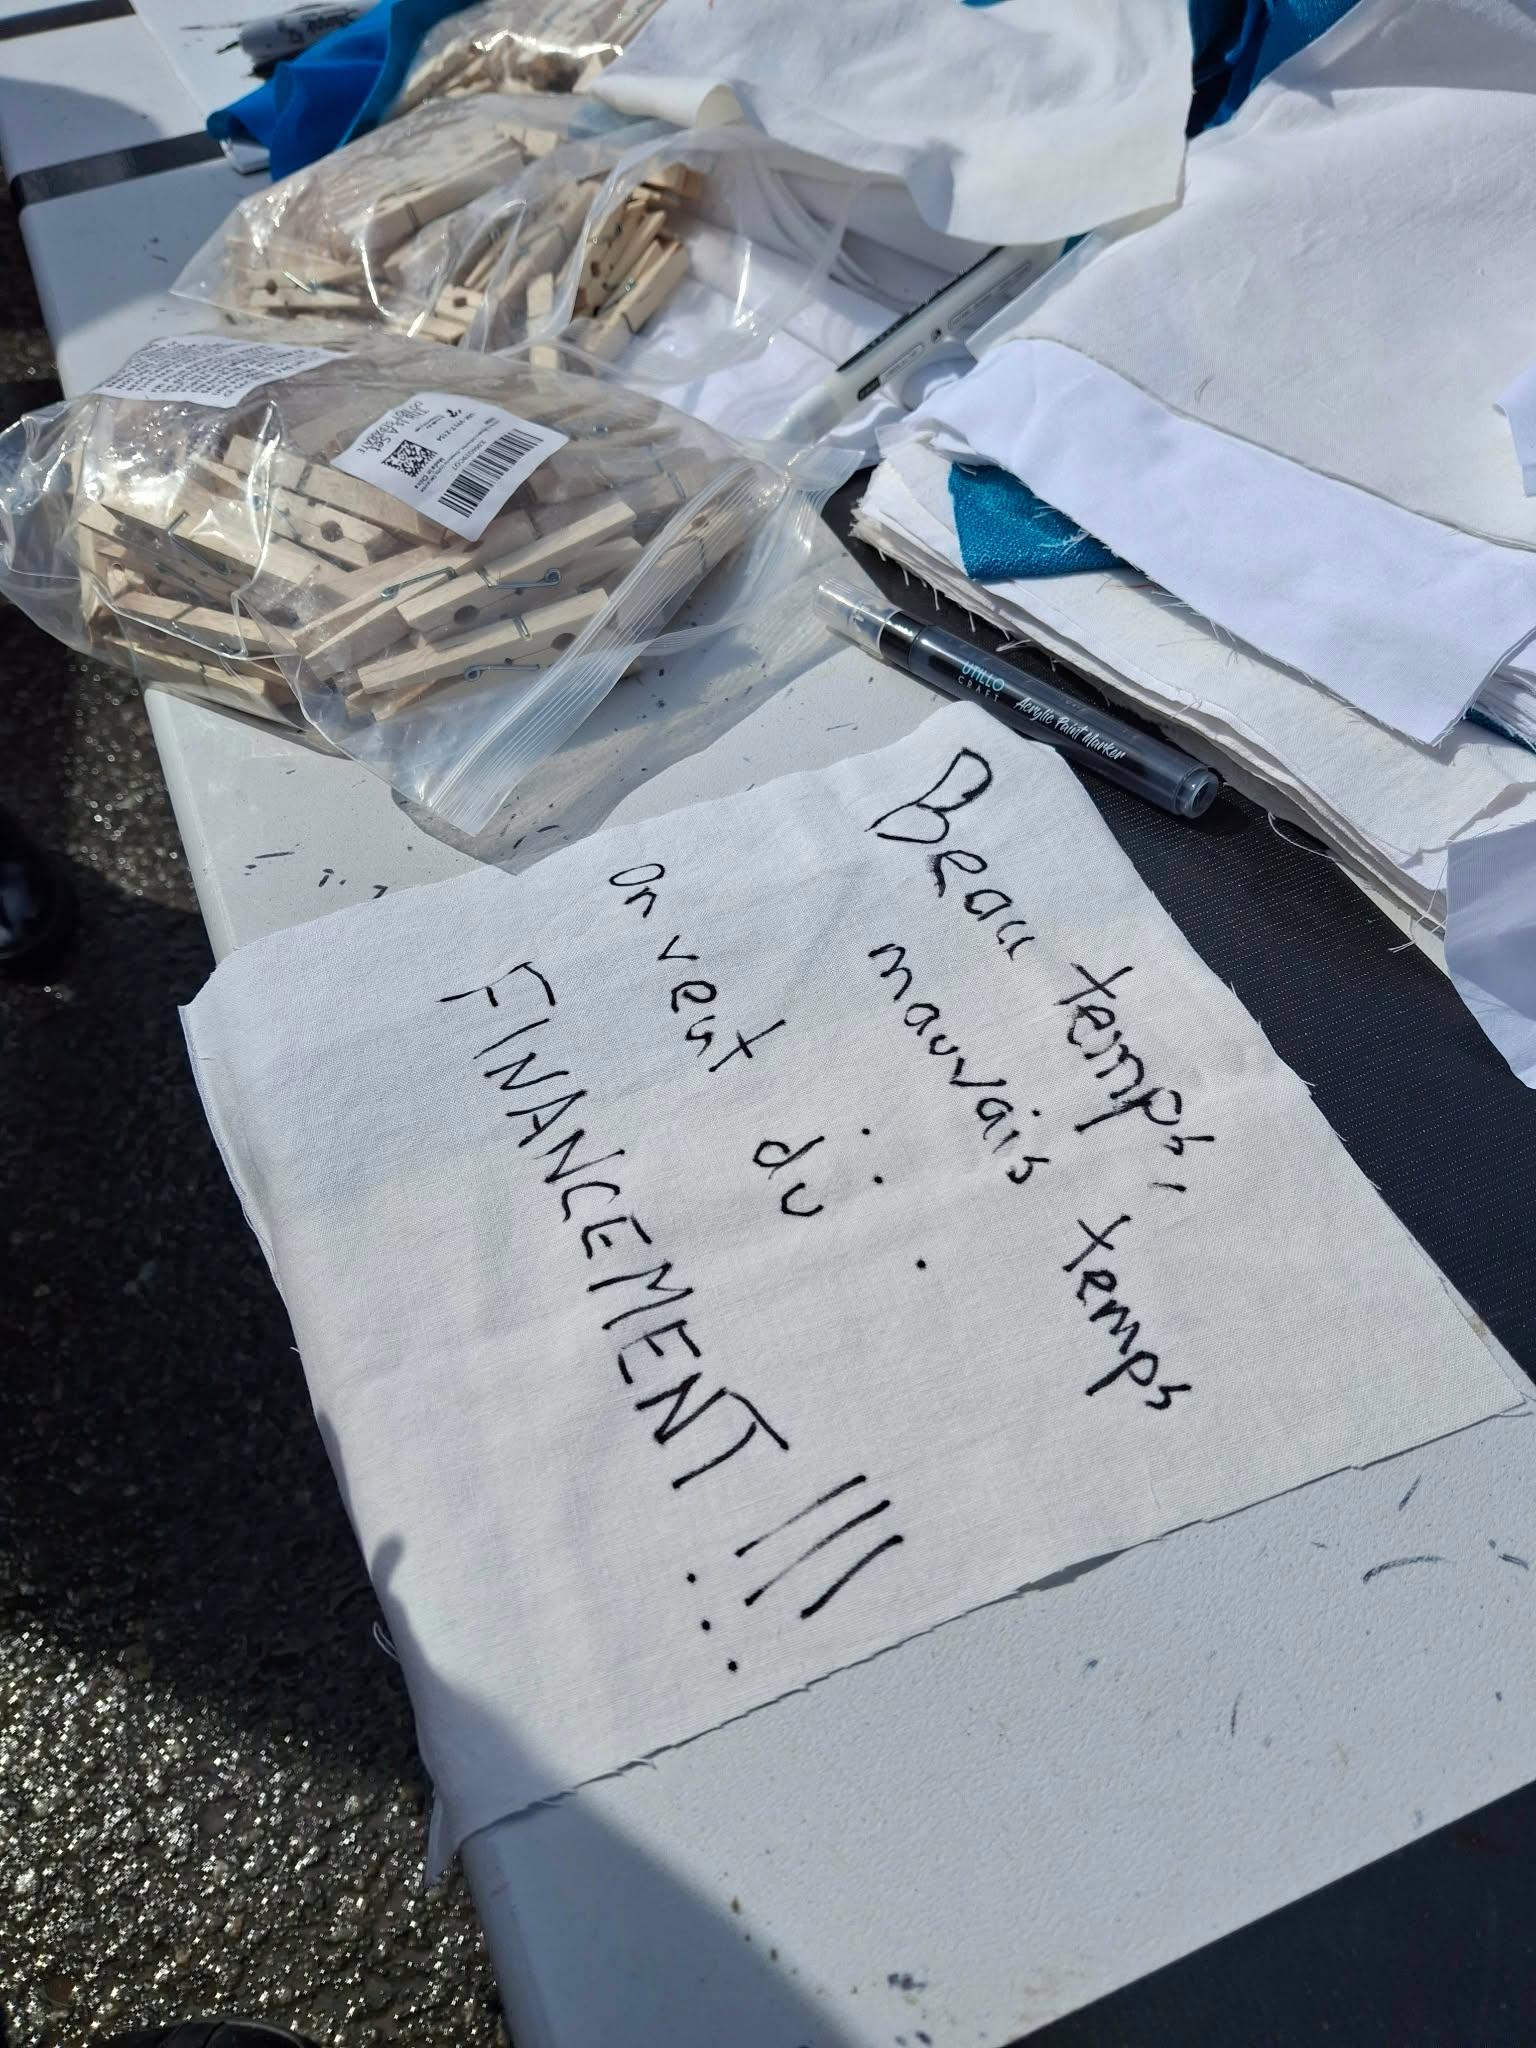 Beau temps,
mauvais temps
...
On veut du
FINANCEMENT !!!
UTILLO
CRAFT
Acrylic Paint Marker
Made in China